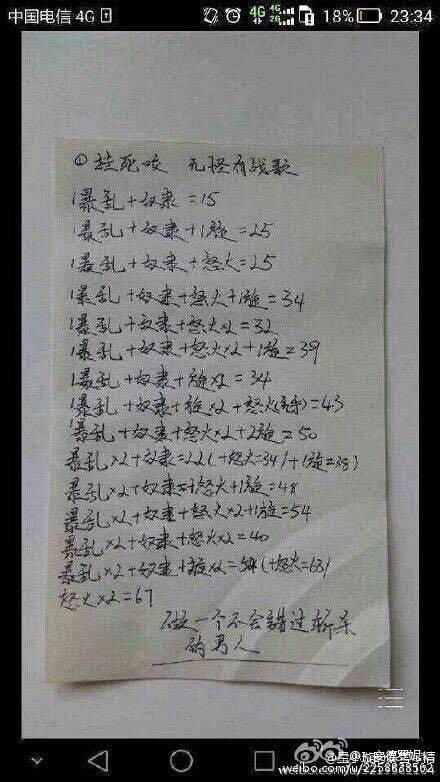 中国电信 4G 4G 4G 2G 18% 23:34
①挂死咬 无怪有战歌
1暴乱+奴隶=15
1暴乱+奴隶+1旋=25
1暴乱+奴隶+怒火=25
1暴乱+奴隶+怒火+1旋=34
1暴乱+奴隶+怒火x2=32
1暴乱+奴隶+怒火x2+1旋=39
1暴乱+奴隶+旋x2=34
1暴乱+奴隶+旋x2+怒火=43
1暴乱+奴隶+怒火x2+2旋=50
暴乱x2+奴隶=22(+怒火=34)+1旋=38)
暴乱x2+奴隶=+怒火+1旋=48
暴乱x2+奴隶+怒火x2+1旋=54
暴乱x2+奴隶+怒火x2=40
暴乱x2+奴隶+旋x2=54(+怒火=63)
怒火x2=67
做一个不会错过斩杀
的男人
weibo.com/u/2259833562